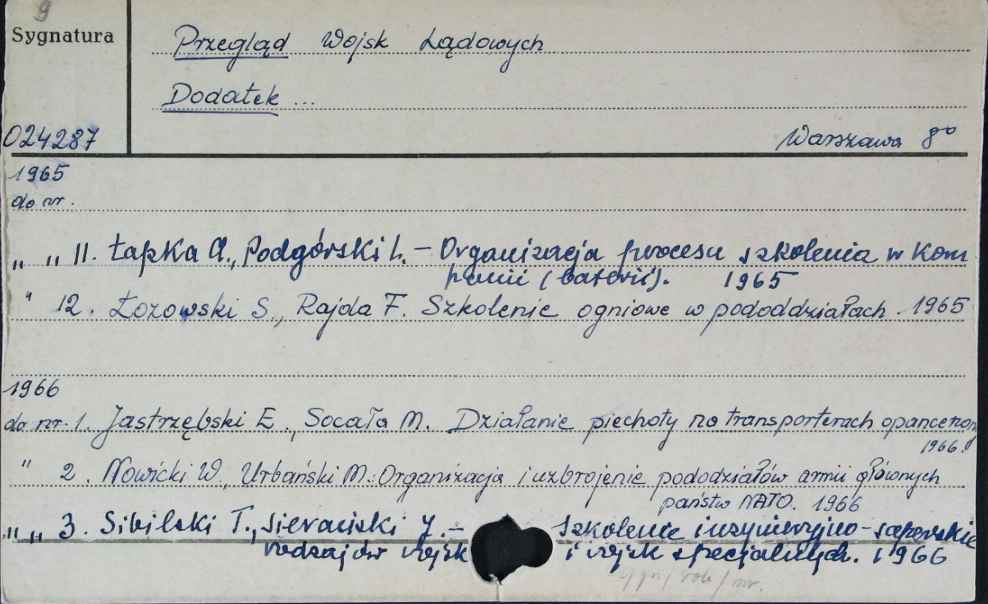 9
Sygnatura
Przegląd Wojsk Lądowych
Dodatek ...
024287
Warszawa 8°
1965
do nr.
„ „ 11. Łapka A., Podgórski L. – Organizacja procesu szkolenia w kom
panii (baterii). 1965
" 12. Łozowski S., Rajda F. Szkolenie ogniowe w pododdziałach. 1965
1966
do nr. 1. Jastrzębski E., Socała M. Działanie piechoty na transporterach opancerzon
1966.
" 2. Nowicki W., Urbański M.: Organizacja i uzbrojenie pododziałów armii głównych
państw NATO. 1966
„ „ 3. Sibilski T., Sieraciski J. – Szkolenie inżynieryjno-saperskie
rodzajów wojsk i wojsk specjalnych. 1966